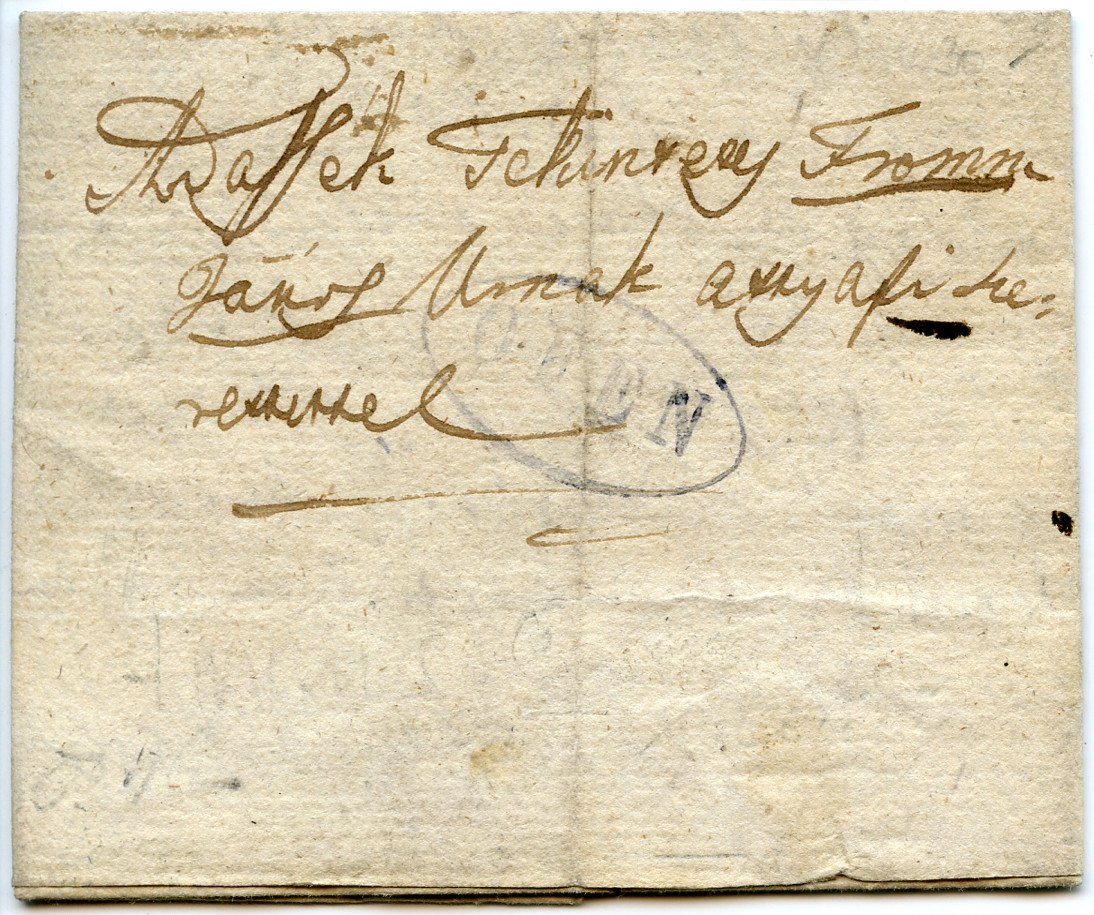 Adassék Tekintetes Fromm
János Urnak attyafi sze-
retettel
OFEN